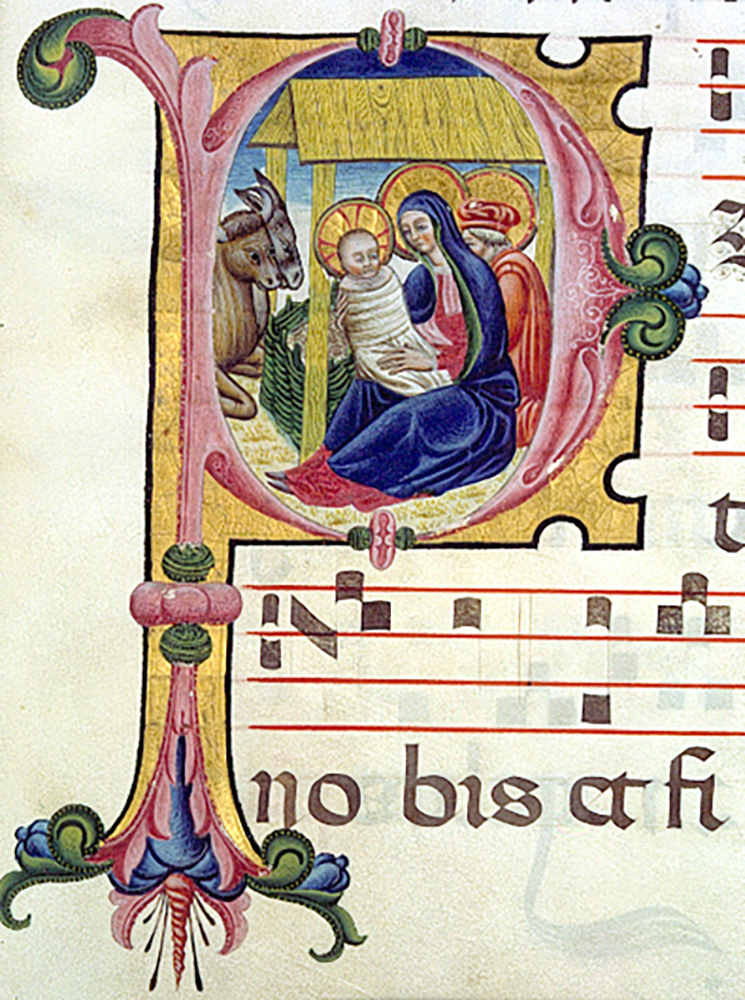 P
t
no bis et fi